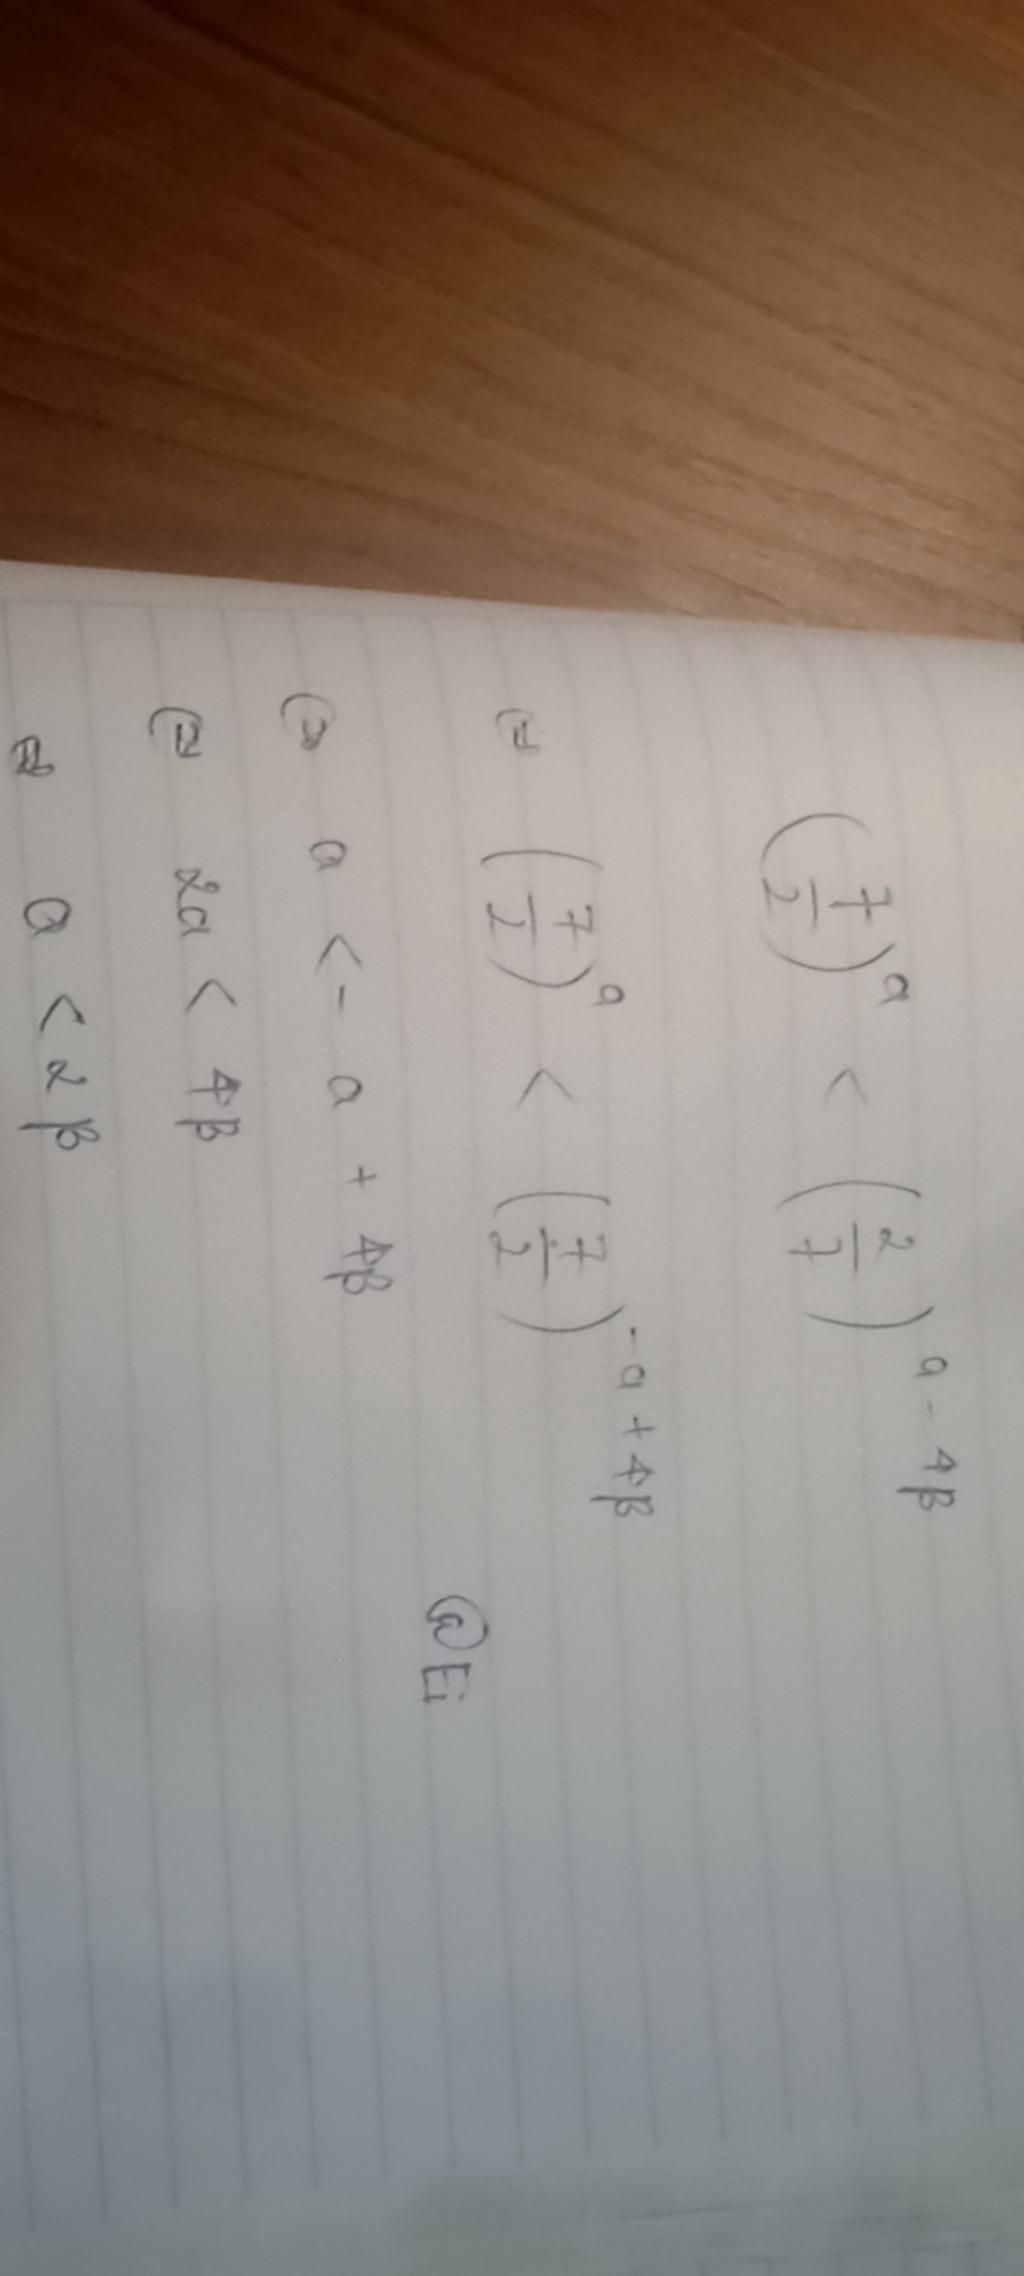 (7/2)^a < (2/7)^(a - 4β)
⇔ (7/2)^a < (7/2)^(-a + 4β)
⇔ a < - a + 4β
⇔ 2a < 4β
⇔ a < 2β
@Ei